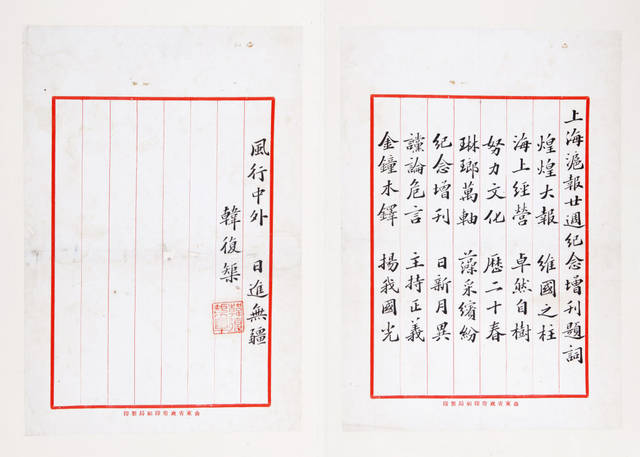 上海滬報廿週紀念增刊題詞
煌煌大報 維國之柱
海上經營 卓然自樹
努力文化 歷二十春
琳瑯萬軸 藻采繽紛
紀念增刊 日新月異
讜論危言 主持正義
金鐘木鐸 揚我國光
風行中外 日進無疆
韓復榘